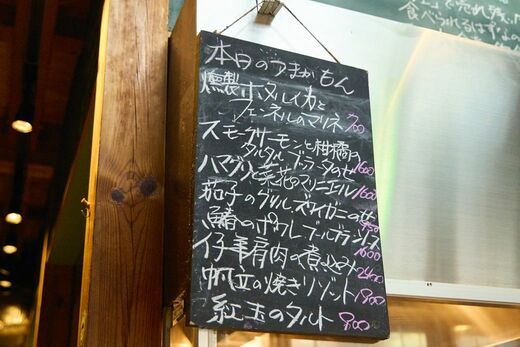 本日のうまかもん
燻製ホタルイカと
フェンネルのマリネ 700
スモークサーモンと柑橘の
タルタルブラータのせ 1600
ハマグリと菜花のマリニエル 1600
茄子のグリル ズワイガニのせ
鰆のポワレ ブールブランソース 1600
仔羊肩肉の煮込み 2400
帆立の焼きリゾット 1800
紅玉のタルト 800
食べられる